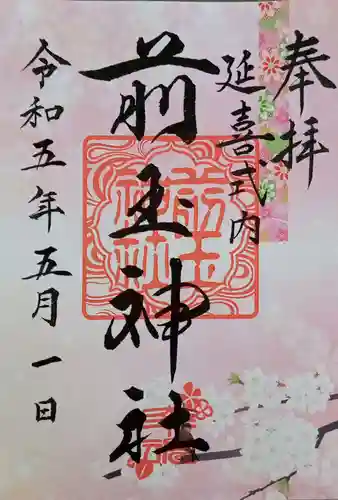 奉拝
延喜式内
前玉神社
令和五年五月一日
前玉神社